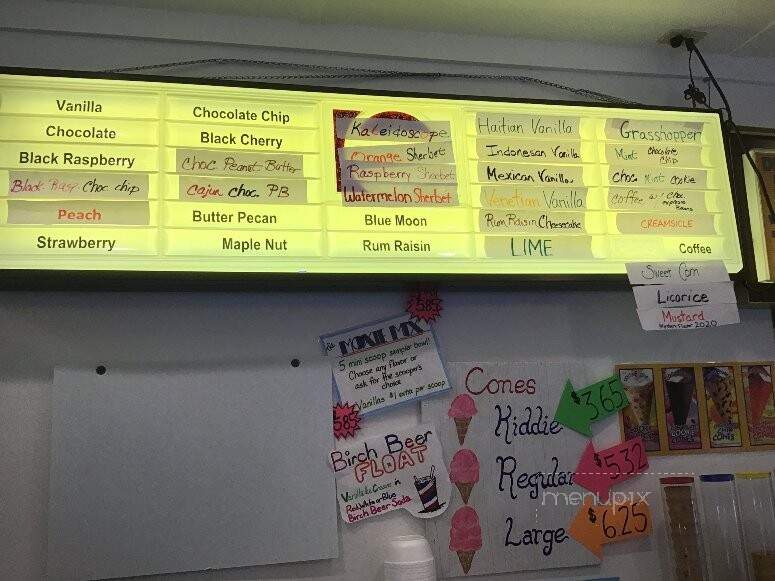 Vanilla
Chocolate
Black Raspberry
Black Rasp. Choc chip
Peach
Strawberry
Chocolate Chip
Black Cherry
Choc. Peanut Butter
Cajun choc. PB
Butter Pecan
Maple Nut
Kaleidoscope
Orange Sherbet
Raspberry Sherbet
Watermelon Sherbet
Blue Moon
Rum Raisin
Haitian Vanilla
Indonesan Vanilla
Mexican Vanilla
Venetian Vanilla
Rum Raisin Cheesecake
LIME
Grasshopper
Mint Chocolate Chip
Choc Mint Cookie
Coffee w/ Choc.
CREAMSICLE
Coffee
Sweet Corn
Licorice
Mustard
2020
585
MOXIE MIX
5 mini scoop sampler bowl!
Choose any flavor or
ask for the scooper's
choice
Vanillas $1 extra per scoop
585
Birch Beer
FLOAT
Vanilla Ice Cream in
Red, White or Blue
Birch Beer Soda
Cones
Kiddie $365
Regular $532
Large $625
menupix